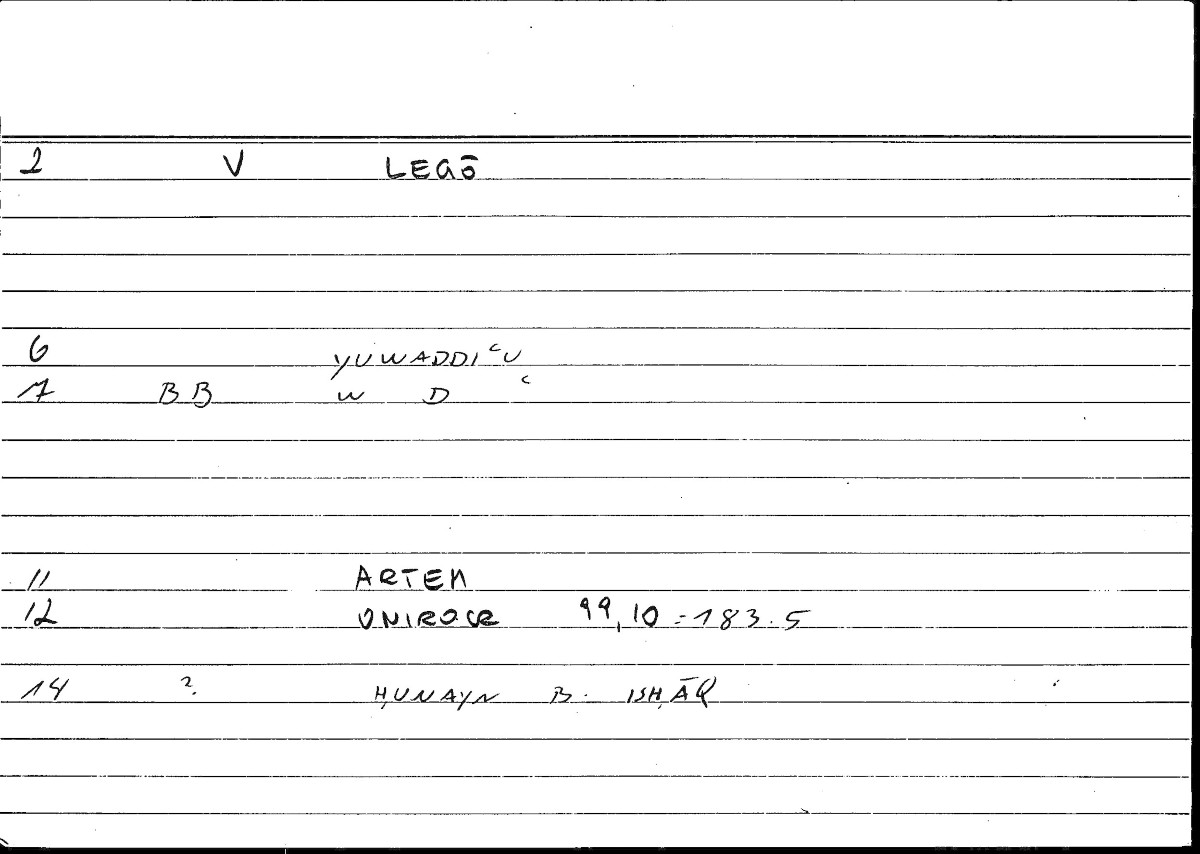 2 V LEGŌ
6 YUWADDIʿU
7 BB W D ʿ
11 ARTEM
12 ONIROCR 99,10 = 183.5
14 ? ḤUNAYN B. ISḤĀQ